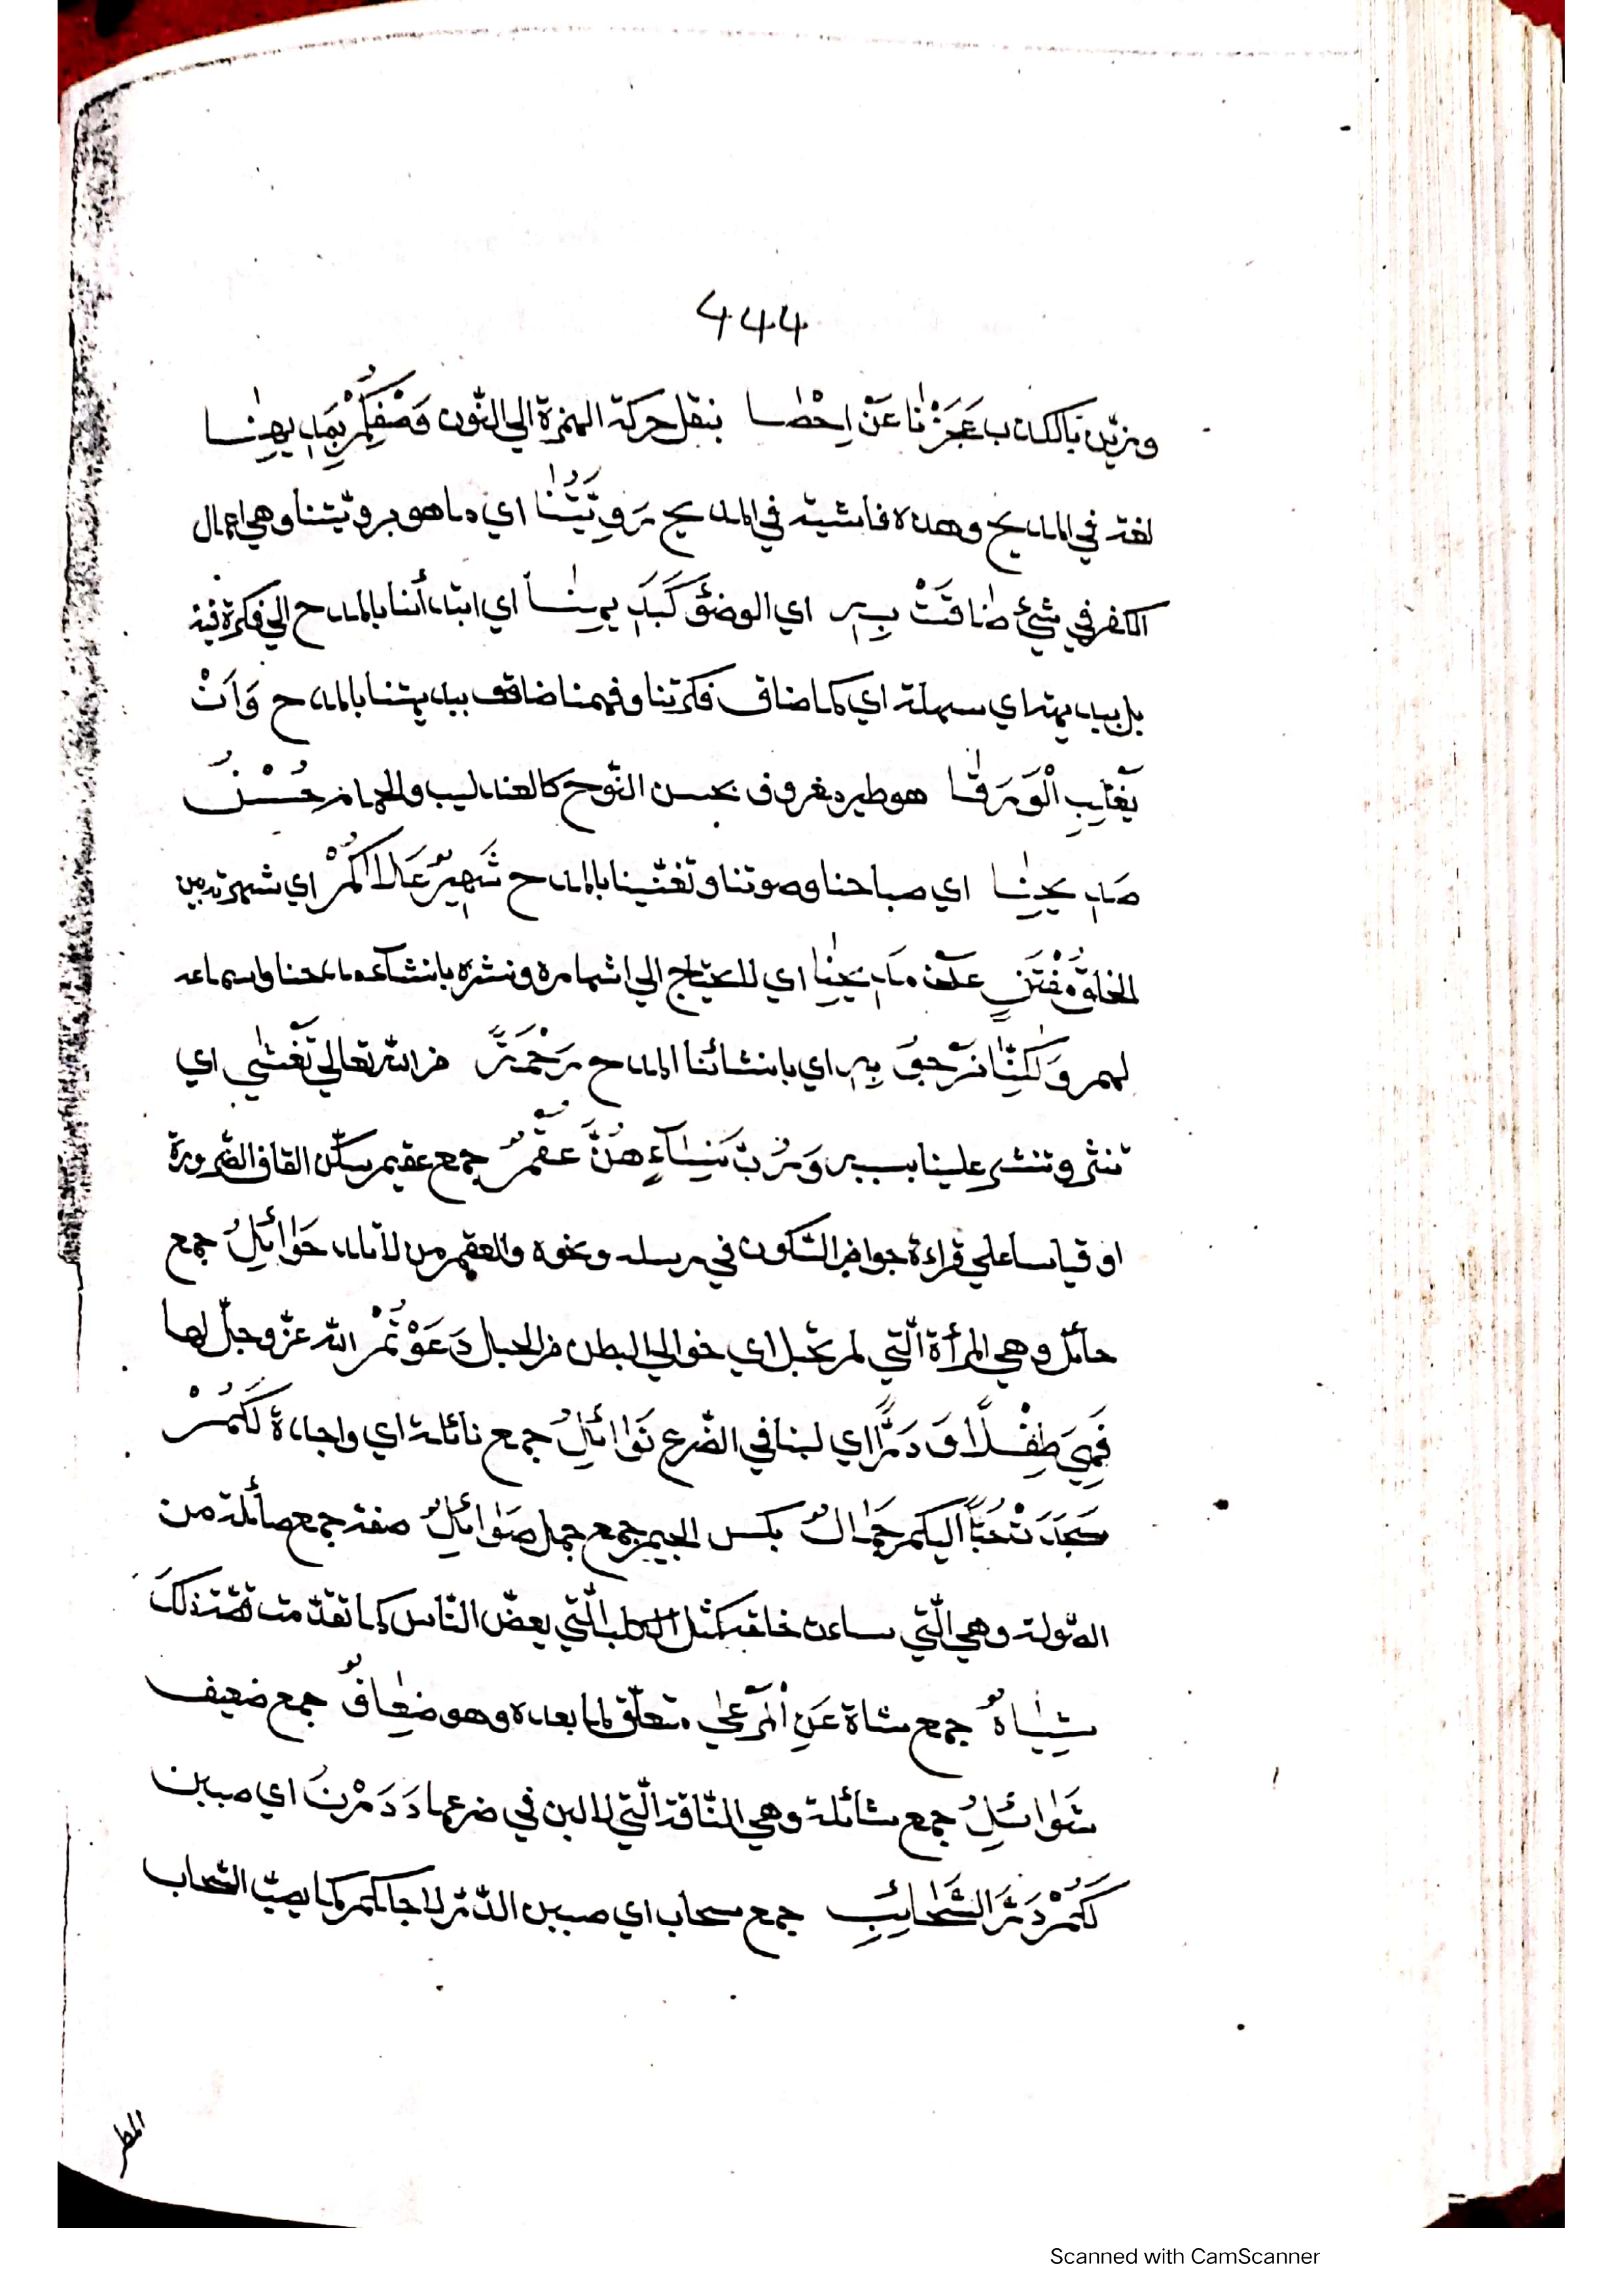 444
وزين بالكتاب عَجَزْنَا عَنْ اِحْصَا بنقل حركة الهمزة الي النّون وَصْفِكُمْ بِمَدِيهِنَا
لغة في المديح وهذه فاشية في المديح رَوِيَّتُنَا اي ما هو برويّتنا وهي اعمال
الكفر في شيئ ضَاقَتْ بِهِ اي الوضوَ كَبَدِيهِنَا اي ابتدأنا بالمدح الي فكرة فيه
بل ببديهة اي سهلة اي كما ضاف فكرتنا وفهمنا ضاقف ببديهتنا بالمدح وَاَنْ
يَّغْلِبِ الْوَرْقَا هو طير معروف بحسن النّوح كالعندليب والحمام حُسْنُ
صَدِيحِنَا اي صباحنا وصوتنا وتغنّينا بالمدح شَهِيرٌ عَلَاكُمْ اي شهرته بين
الخلق مُغْتَنٍ عَنْ مَدِيحِنَا اي لا يحتاج الي اشهاره ونشره بانشآء مدحنا واسماعه
لهم وَلٰكِنَّا نَرْجُو بِهِ اي بانشائنا المدح رَحْمَةً من الله تعالي تَغْشٰي اي
تنثر وتنشر علينا بسببه وَرُبَّ نِسَآءٍ هُنَّ عُقْمٌ جمع عقيم بسكّن القاف الضّرورة
او قياسا علي قراءة جواز السّكون في رسله ونحوه والعقيم من لا تلد حَوَائِلُ جمع
حائل وهي المرأة الّتي لم تحبل اي خوالي البطن من الحبل دَعَوْتُمْ الله عزّ وجلّ لها
فَهِيَ طِفْلًا وَدَرًّا اي لبنا في الضّرع نَوَائِلُ جمع نائلة اي واجدة لَكُمْ
سَجَدَتْ حُبًّا اليكم جِمَالٌ بكسر الجيم جمع جمل صَوَائِلٌ صفة جمع صائلة من
الصّولة وهي الّتي ساءت خلقه كمثل الكلب الّتي يعضّ النّاس كما تقدّمت قصّتذلك
شِيَاهٌ جمع شاة عَنِ الْمَرْعٰي متعلّق لما بعده وهو ضِعَافٌ جمع ضعيف
شَوَائِلُ جمع شائلة وهي النّاقة الّتي لا لبن في ضرعها دَرَرْنَ اي صببن
لَكُمْ دَرَّ السَّحَائِبِ جمع سحاب اي صببن الدّرّ لاجلكم كما يصبّ السّحاب
المطر
Scanned with CamScanner